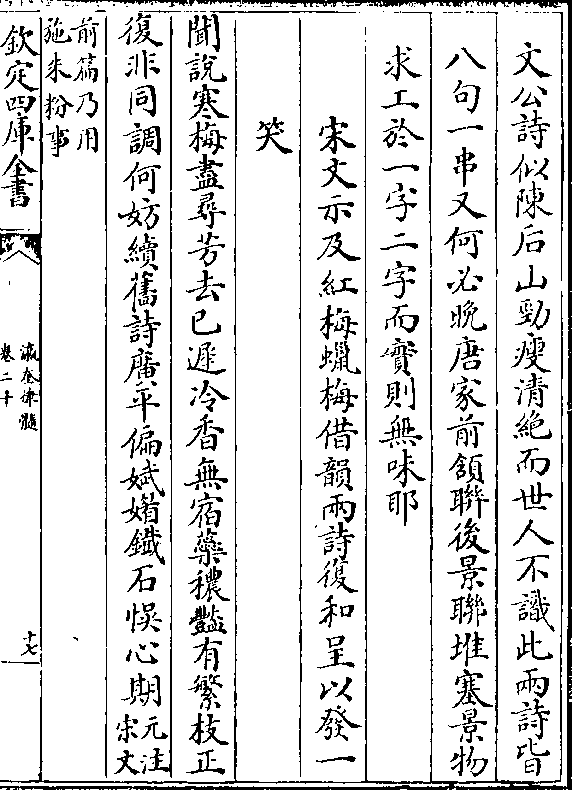 文公詩似陳后山勁瘦清絶而世人不識此兩詩皆
八句一串又何必晚唐家前頷聯後景聯堆塞景物
求工於一字二字而實則無味耶
宋丈示及紅梅蠟梅借韻兩詩復和呈以發一
笑
聞說寒梅盡尋芳去已遲冷香無宿蘂穠豔有繁枝正
復非同調何妨續舊詩廣平偏娬媚鐵石悞心期元注宋丈
前篇乃用
施朱粉事
欽定四庫全書
瀛奎律髓
卷二十
十七